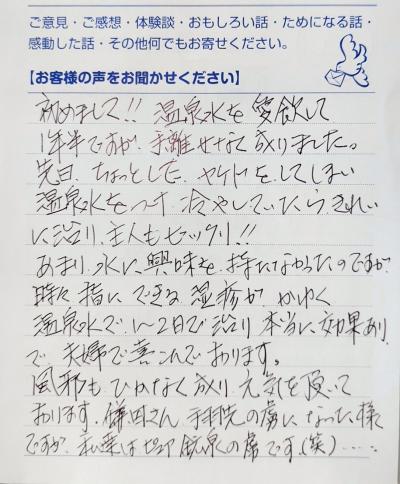 ご意見・ご感想・体験談・おもしろい話・ためになる話・
感動した話・その他何でもお寄せください。
【お客様の声をお聞かせください】
初めまして!! 温泉水を愛飲して
1年半ですが、手離せなく成りました。
先日、ちょっとした、ヤケドを、してしまい
温泉水をつけ、冷やしていたら、きれい
に治り、主人もビックリ!!
あまり、水に、興味を、持たなかったのですが、
時々、指に、できる、湿疹が、かゆく
温泉水で、1〜2日で治り、本当に、効果あり
で、夫婦で喜こんでおります。
風邪も、ひかなく成り、元気を頂いて
おります。鎌田さん、手洗の虜に、なった様
ですが、私達はピュア鉱泉の虜です。(笑)……